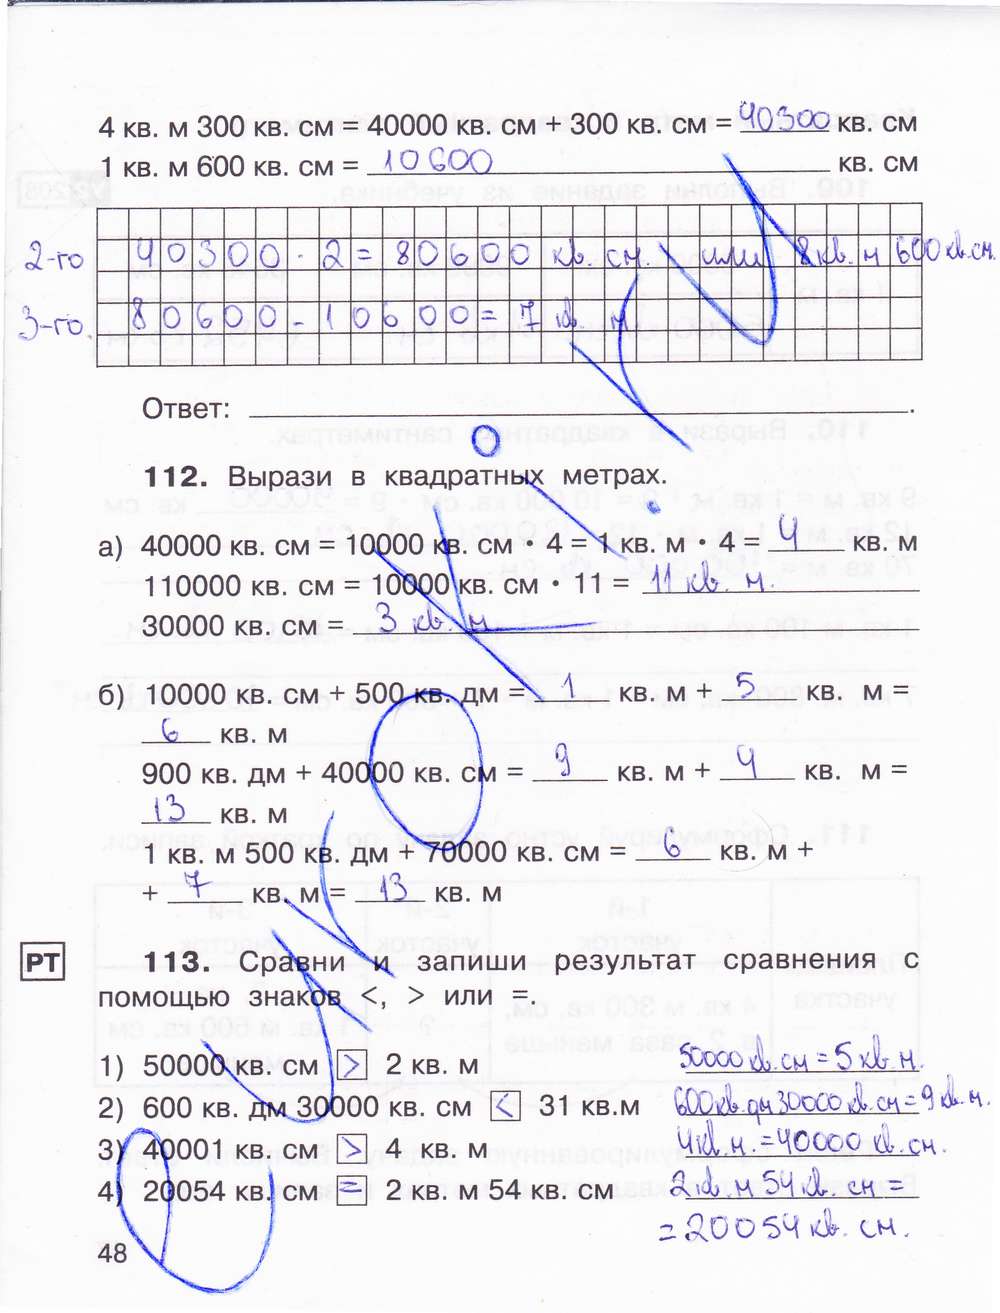 4 кв. м 300 кв. см = 40000 кв. см + 300 кв. см = 40300 кв. см
1 кв. м 600 кв. см = 10600 кв. см
2-го 40300 · 2 = 80600 кв см или 8 кв. м 600 кв. см.
3-го. 80600 - 10600 = 7 кв. м
Ответ:
112. Вырази в квадратных метрах.
а) 40000 кв. см = 10000 кв. см · 4 = 1 кв. м · 4 = 4 кв. м
110000 кв. см = 10000 кв. см · 11 = 11 кв. м.
30000 кв. см = 3 кв. м
б) 10000 кв. см + 500 кв. дм = 1 кв. м + 5 кв. м =
6 кв. м
900 кв. дм + 40000 кв. см = 9 кв. м + 4 кв. м =
13 кв. м
1 кв. м 500 кв. дм + 70000 кв. см = 6 кв. м +
+ 7 кв. м = 13 кв. м
РТ 113. Сравни и запиши результат сравнения с
помощью знаков <, > или =.
1) 50000 кв. см > 2 кв. м 50000 кв. см = 5 кв. м.
2) 600 кв. дм 30000 кв. см < 31 кв.м 600 кв. дм 30000 кв. см = 9 кв. м.
3) 40001 кв. см > 4 кв. м 4 кв. м. = 40000 кв. см.
4) 20054 кв. см = 2 кв. м 54 кв. см 2 кв. м 54 кв. см =
= 20054 кв. см.
48